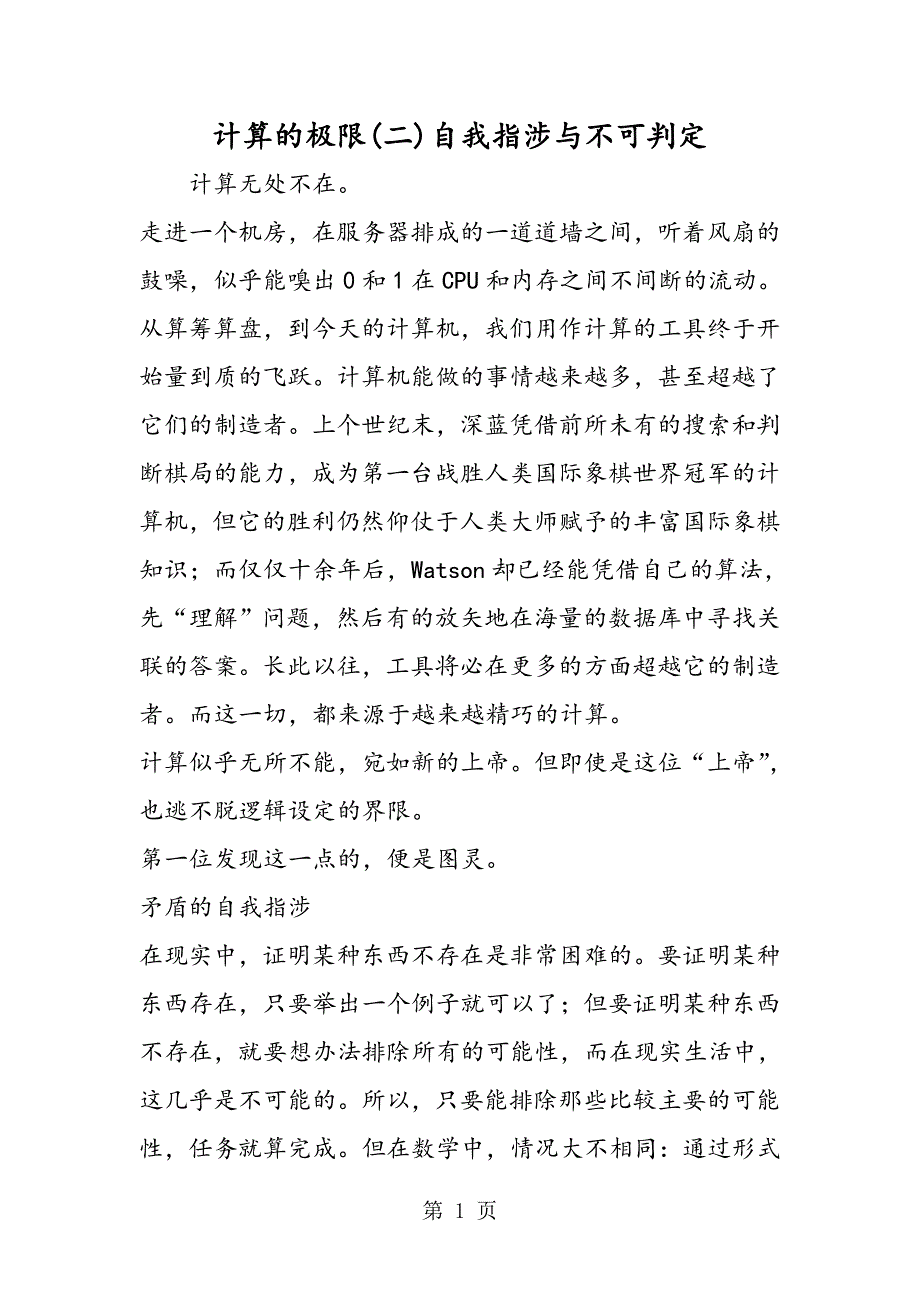 计算的极限(二)自我指涉与不可判定
计算无处不在。
走进一个机房，在服务器排成的一道道墙之间，听着风扇的
鼓噪，似乎能嗅出0和1在CPU和内存之间不间断的流动。
从算筹算盘，到今天的计算机，我们用作计算的工具终于开
始量到质的飞跃。计算机能做的事情越来越多，甚至超越了
它们的制造者。上个世纪末，深蓝凭借前所未有的搜索和判
断棋局的能力，成为第一台战胜人类国际象棋世界冠军的计
算机，但它的胜利仍然仰仗于人类大师赋予的丰富国际象棋
知识；而仅仅十余年后，Watson却已经能凭借自己的算法，
先“理解”问题，然后有的放矢地在海量的数据库中寻找关
联的答案。长此以往，工具将必在更多的方面超越它的制造
者。而这一切，都来源于越来越精巧的计算。
计算似乎无所不能，宛如新的上帝。但即使是这位“上帝”，
也逃不脱逻辑设定的界限。
第一位发现这一点的，便是图灵。
矛盾的自我指涉
在现实中，证明某种东西不存在是非常困难的。要证明某种
东西存在，只要举出一个例子就可以了；但要证明某种东西
不存在，就要想办法排除所有的可能性，而在现实生活中，
这几乎是不可能的。所以，只要能排除那些比较主要的可能
性，任务就算完成。但在数学中，情况大不相同：通过形式
第 1 页